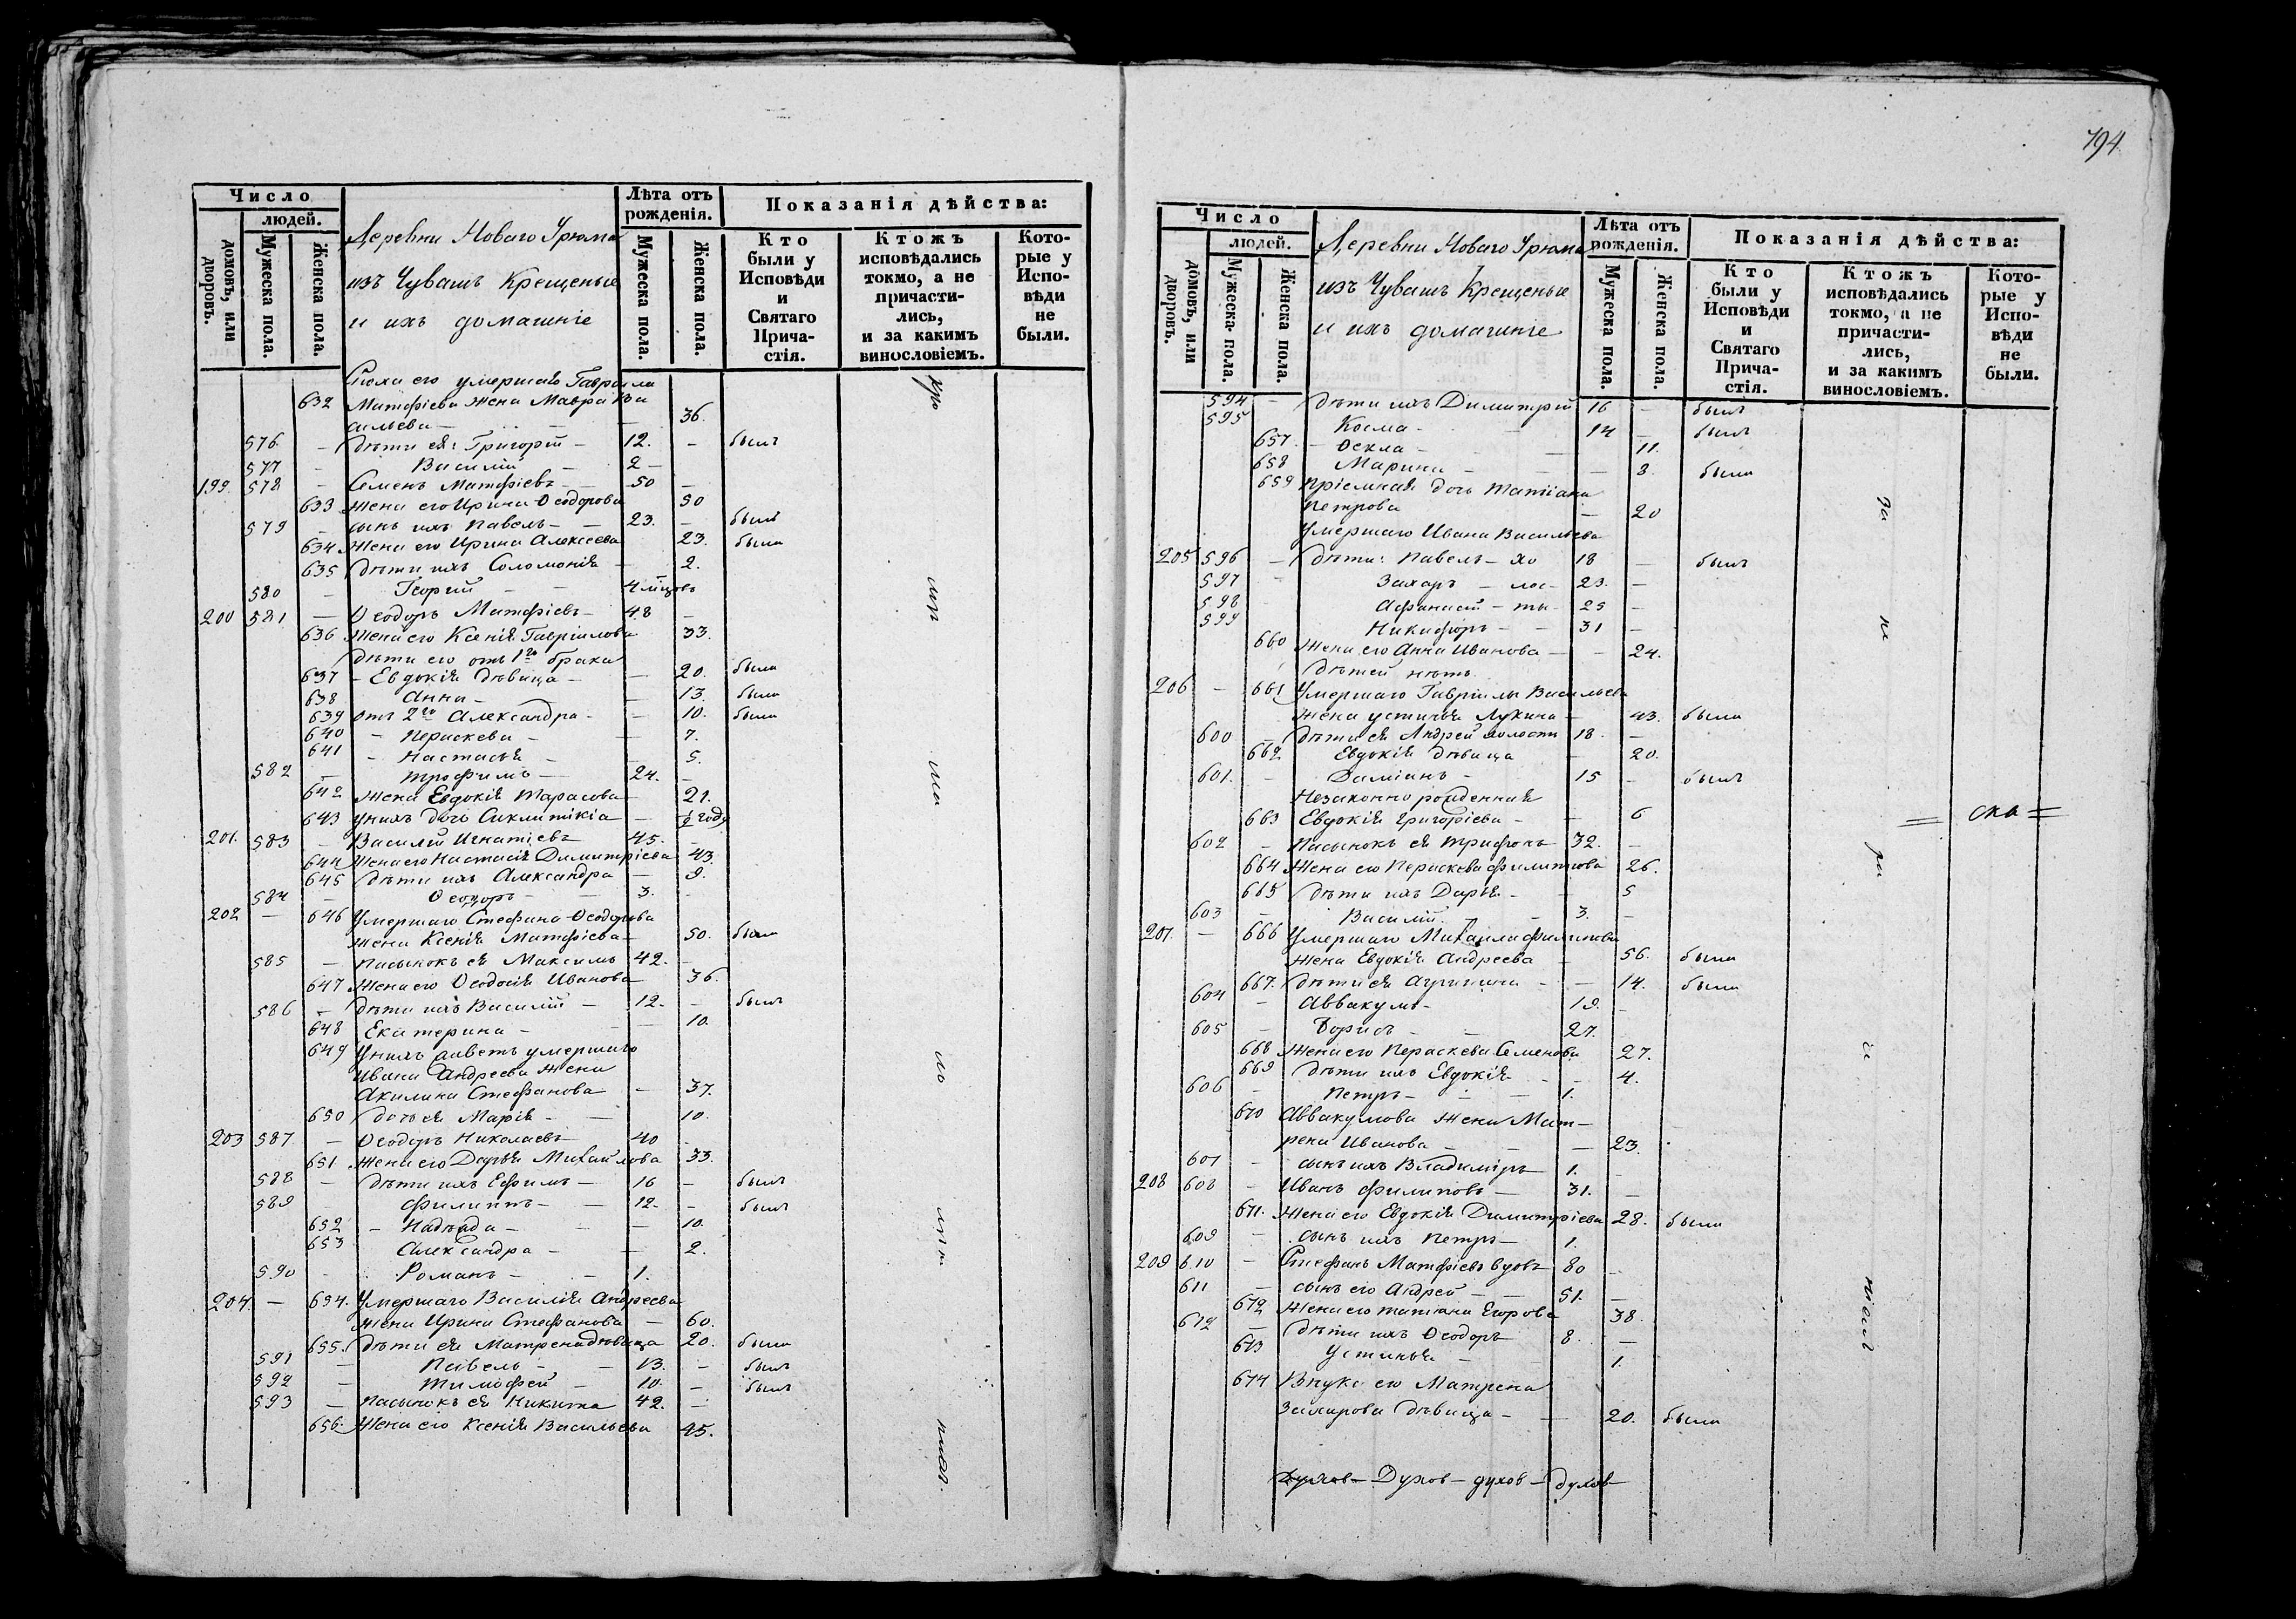 794
Число
людей.
домовъ, или дворовъ.
Мужеска пола.
Женска пола.
Деревни Новаго Урюма
изъ Чувашъ Крещеные
и ихъ домашніе
Лѣта отъ рожденія.
Мужеска пола.
Женска пола.
Показанія дѣйства:
Кто были у Исповѣди и Святаго Причастія.
Ктожъ исповѣдались токмо, а не причастились, и за какимъ винословіемъ.
Которые у Исповѣди не были.
его умершаго Гавріила
632 Матфіева жена Мавра Ва
сильева — 36.
576 — дѣти ея: Григорій — 12. — былъ
577 — Василій — 2 —
199. 578 — Семенъ Матфіевъ — 50 —
633 жена его Ирина Ѳеодорова 50
579 — сынъ ихъ Павелъ — 23. — былъ
634. Жена его Ирина Алексеева 23. была
635 дѣти ихъ Соломонія — 2.
580 — Георгій — 4 мѣцовъ
200 581 — Ѳеодоръ Матфіевъ — 48 —
636 жена его Ксенія Гавріилова 33.
дѣти его отъ 1го брака
637 — Евдокія дѣвица — 20. была
638 Анна — 13. была
639 отъ 2го Александра — 10. была
640 — Пераскева — 7.
641 — Настасья — 5.
582 — Трофимъ — 24. —
642 жена Евдокія Тарасова 21.
643 у нихъ дочь Сиклитикіа — ½ года
201. 583 — Василій Игнатіевъ 45. —
644 Жена его Настасія Димитріева 43.
645 дѣти ихъ Александра — 9.
584 — Ѳеодоръ — 3. —
202 — 646 Умершаго Стефана Ѳеодорова
жена Ксенія Матфіева — 50. была
585 — пасынокъ ея Максимъ 42. —
647 Жена его Ѳеодосія Иванова 36.
586 — дѣти ихъ Василій — 12. — былъ
648 Екатерина — 10.
649 У нихъ живетъ умершаго
Ивана Андреева жена
Акилина Стефанова — 37.
650 дочь ея Марія — 10.
203 587 — Ѳеодоръ Николаевъ 40 —
651 Жена его Дарья Михайлова 33.
588 — дѣти ихъ Ефимъ — 16 — былъ
589 филиппъ — 12. — былъ
652 — Надежда — 10.
653 Александра — 2.
590 — Романъ — 1.
204. — 654. Умершаго Василія Андреева
жена Ирина Стефанова — 60.
655. дѣти ея Матрена дѣвица 20. была
591 — Павелъ — 13. — былъ
592 — Тимофей — 10. — былъ
593 — пасынокъ ея Никита 42. —
656. Жена его Ксенія Васильева 45.
Число
людей.
домовъ, или дворовъ.
Мужеска пола.
Женска пола.
Деревни Новаго Урюма
изъ Чувашъ Крещеные
и ихъ домашніе
Лѣта отъ рожденія.
Мужеска пола.
Женска пола.
Показанія дѣйства:
Кто были у Исповѣди и Святаго Причастія.
Ктожъ исповѣдались токмо, а не причастились, и за какимъ винословіемъ.
Которые у Исповѣди не были.
594 — дѣти ихъ Димитрій 16 — былъ
595 Косма — 14 — былъ
657. — Ѳекла — 11.
658 Марина — 8. была
659 пріемная дочь Татіана
Петрова — 20
Умершаго Ивана Васильева
205 596 — дѣти: Павелъ — хо 18 — былъ
597 — Захаръ — лос — 23. —
598 — Афанасій — ты — 25 —
599 Никифоръ — 31 —
660 Жена его Анна Иванова — 24.
дѣтей нѣтъ.
206 — 661 Умершаго Гавріилы Васильева
жена устинья Лукина — 43. была
600 — дѣти ея Андрей холостъ 18. —
662 Евдокія дѣвица — 20.
601. — Даміанъ — 15 — былъ
Незаконно рожденная
663 Евдокія Григоріева — 6
602 — Пасынокъ ея Трифонъ 32. —
664 Жена его Пераскева Филиппова 26.
665 дѣти ихъ Дарія — 5
603 — Василій — 3. —
207. — 666 Умершаго Михаила Филипова
жена Евдокія Андреева — 56. была
667. дѣти ея Агрипина — 14. была
604 — Аввакумъ — 19. —
605 — Борисъ — 27.
668 Жена его Пераскева Семенова 27.
669 дѣти ихъ Евдокія — 4.
606 — Петръ — 1.
670 Аввакумова жена Мат-
рена Иванова — 23.
607 — сынъ ихъ Владиміръ 1. —
208 608 — Иванъ Филиповъ — 31. —
671. Жена его Евдокія Димитріева 28. была
609 — сынъ ихъ Петръ — 1.
209 610 — Стефанъ Матфіевъ вдовъ 80 —
611 — сынъ его Андрей — 51. —
672 Жена его Татіана Егорова 38.
612 — дѣти ихъ Ѳеодоръ 8. —
673 Устинья — 1.
674 Внука его Матрена
Захарова дѣвица — 20. была
= ска =
Духов — Духов — духов — духов